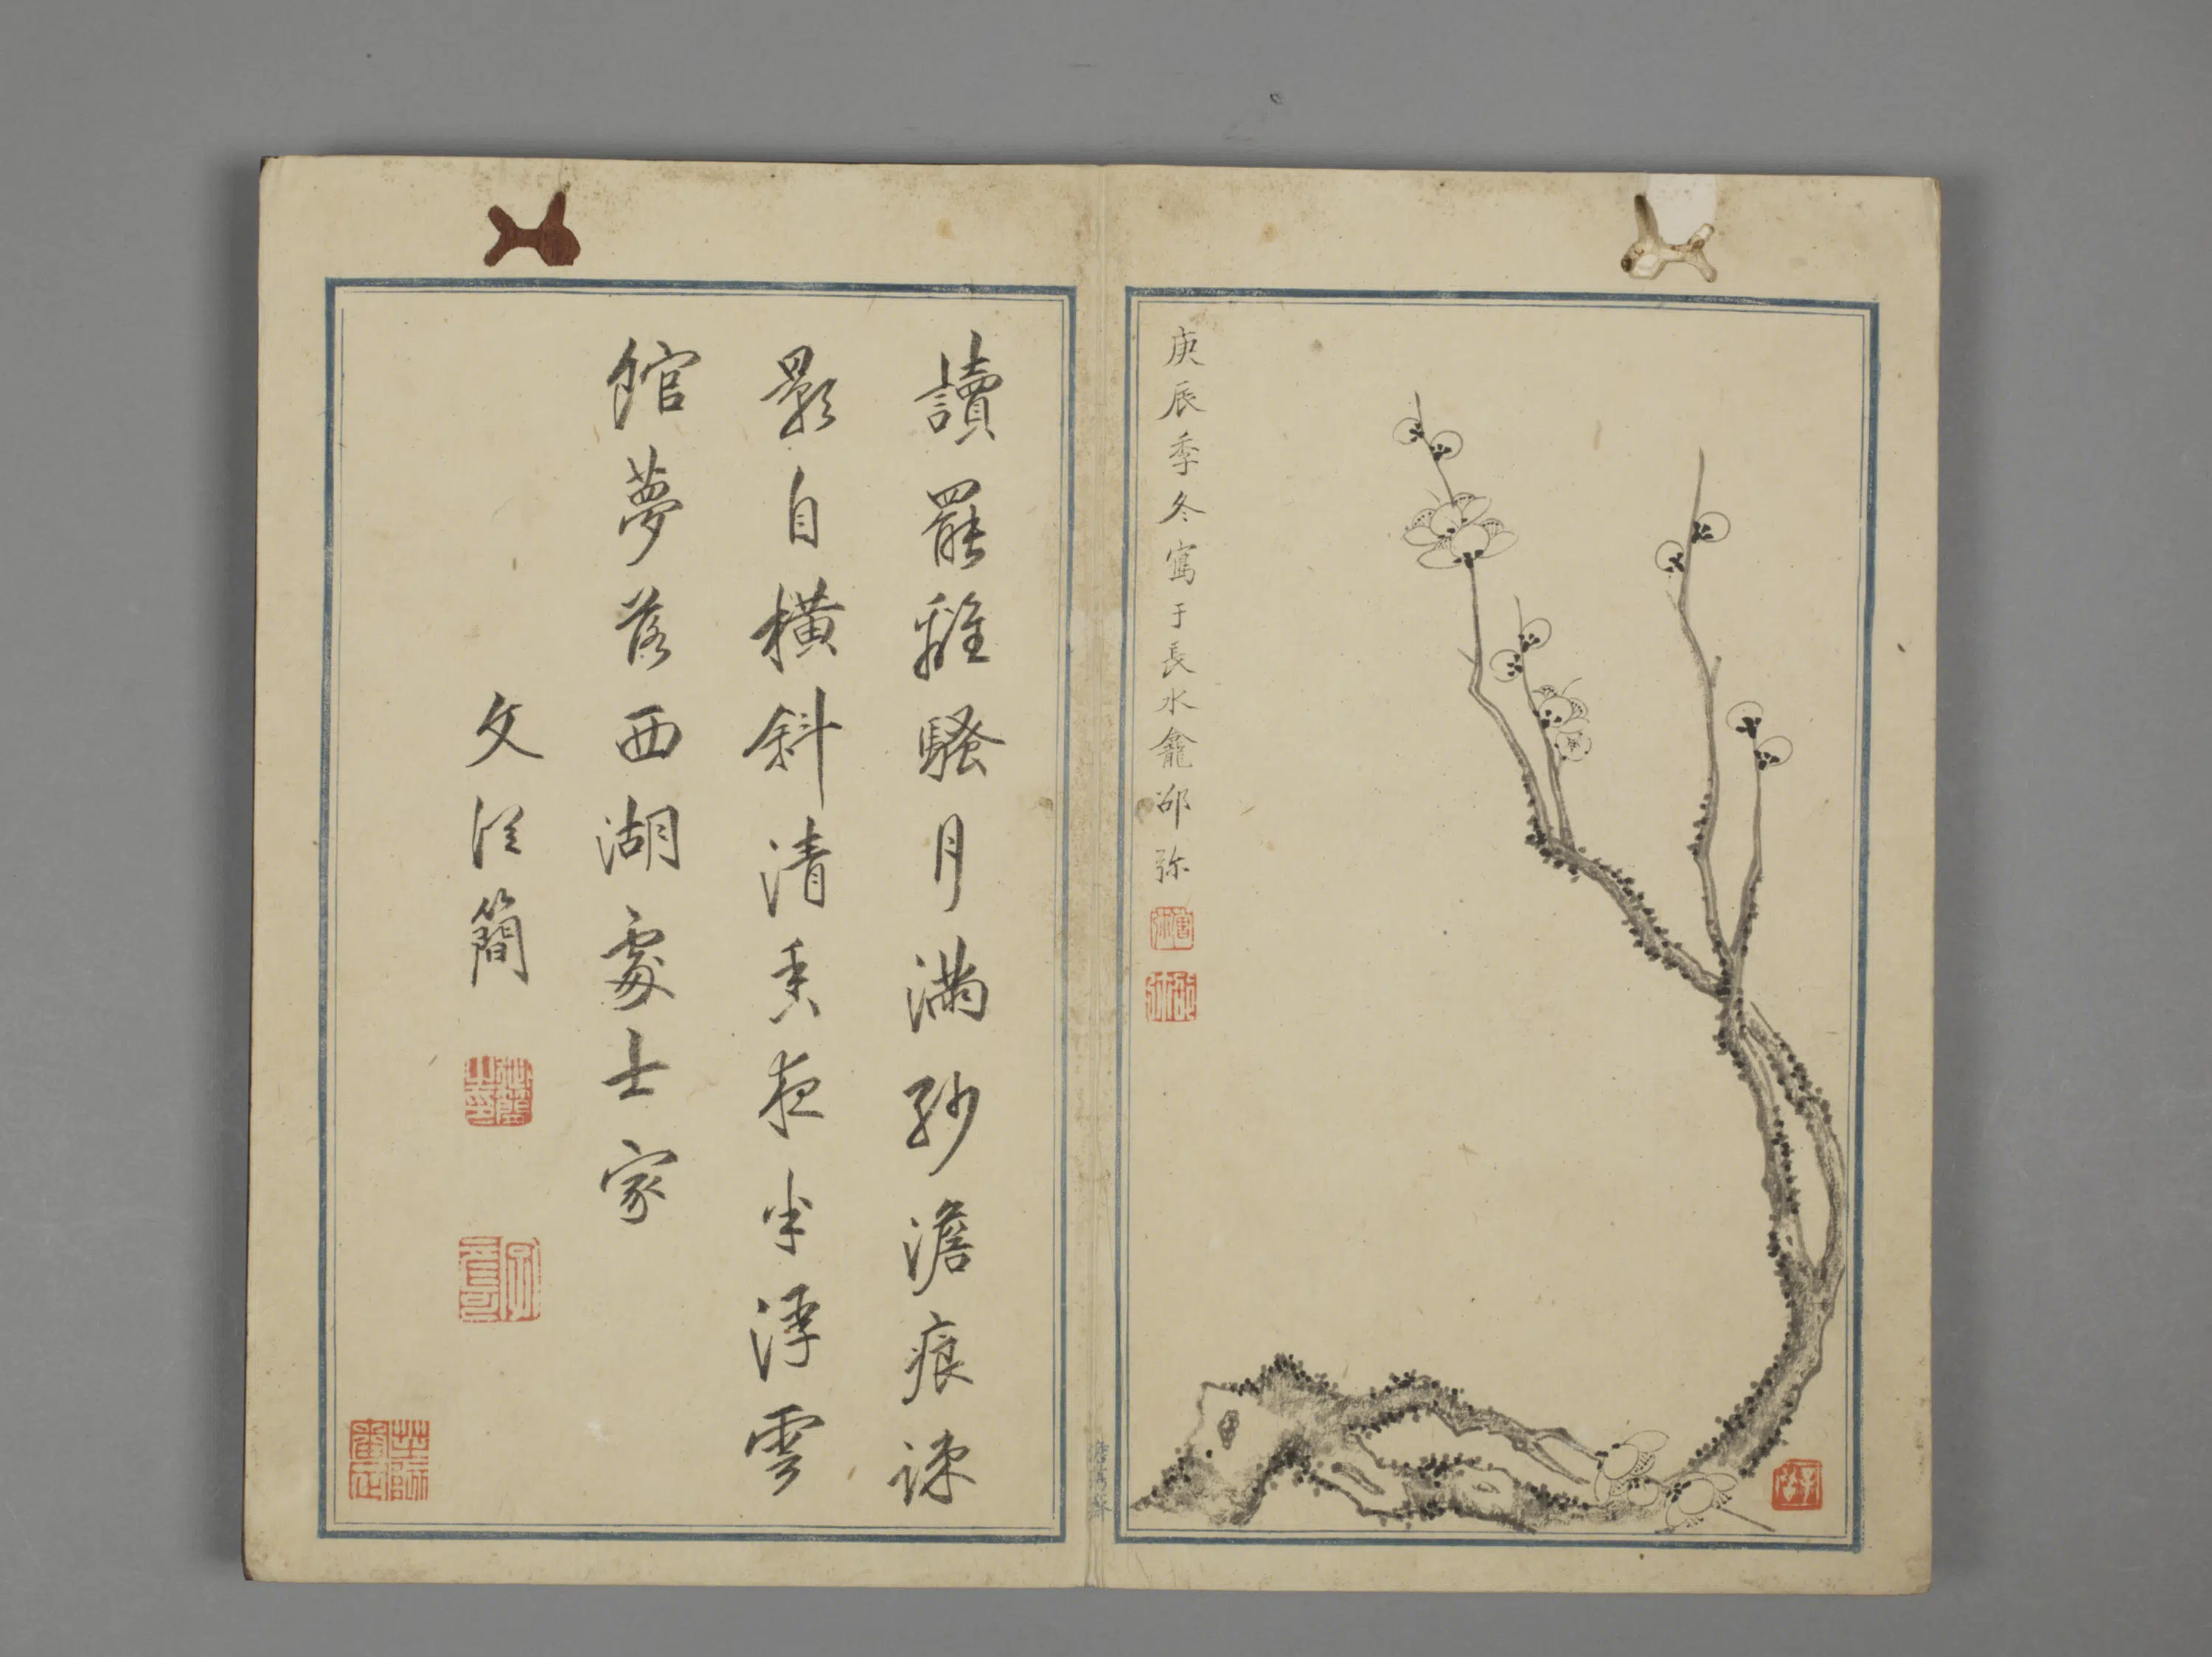 庚辰季冬寫于長水龕邵弥
讀罷離騷月滿紗澹痕疎
影自橫斜清香夜半浮雲
館夢落西湖處士家
文從簡